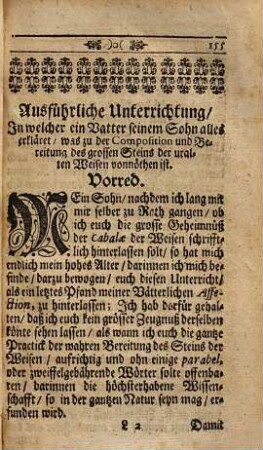 )o( 155
Ausführliche Unterrichtung/
In welcher ein Vatter seinem Sohn alles
erkläret/ was zu der Composition und Be-
reitung des grossen Steins der ural-
ten Weisen vonnöthen ist.
Vorred.
MEin Sohn/ nachdem ich lang mit
mir selber zu Rath gangen/ ob
ich euch die grosse Geheimnüß
der Cabalæ der Weisen schrifft-
lich hinterlassen solt/ so hat mich
endlich mein hohes Alter/ darinnen ich mich be-
finde/ darzu bewogen/ euch diesen Unterricht/
als ein letztes Pfand meiner Vätterlichen Affe-
ction, zu hinterlassen; Ich hab darfür gehal-
ten/ daß ich euch kein grösser Zeugnuß derselben
könte sehen lassen/ als wann ich euch die gantze
Practick der wahren Bereitung des Steins der
Weisen/ aufrichtig und ohn einige parabel,
oder zweiffelgebährende Wörter solte offenba-
ren/ darinnen die höchsterhabene Wissen-
schafft/ so in der gantzen Natur seyn mag/ er-
funden wird.
L 2 Damit